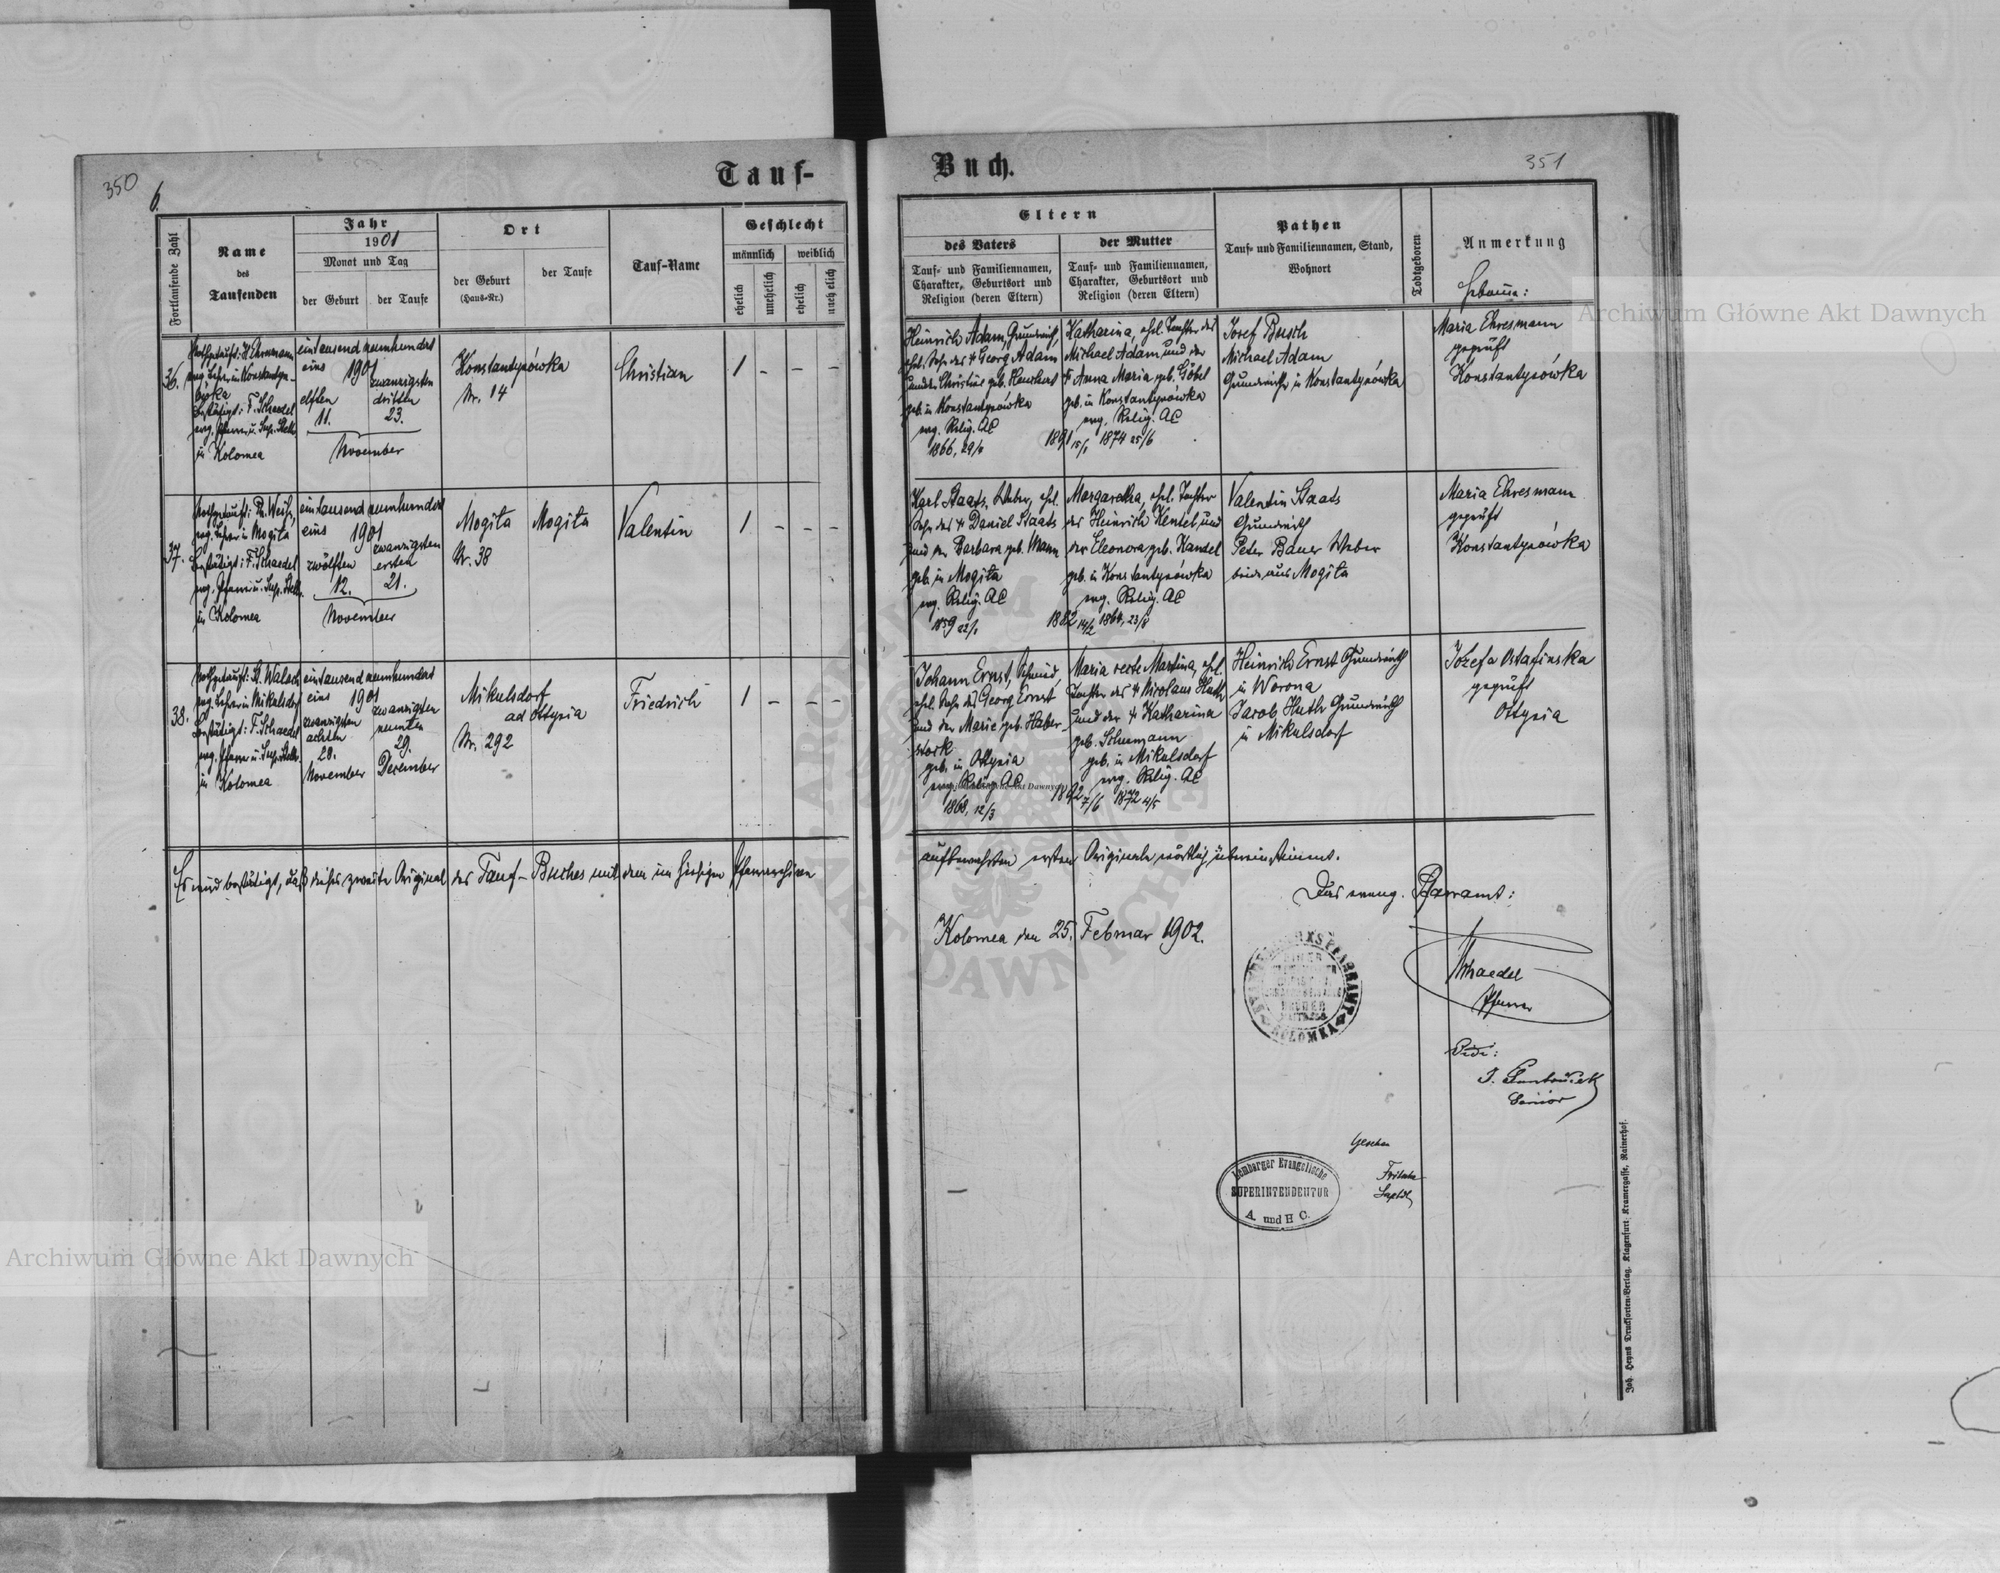 350
6.
Tauf-
Fortlaufende Zahl
Name
des
Taufenden
Jahr
1901
Monat und Tag
der Geburt
der Taufe
Ort
der Geburt
(Haus-Nr.)
der Taufe
Tauf-Name
Geschlecht
männlich
weiblich
ehelich
unehelich
ehelich
unehelich
36.
Nothgetauft: H. Ehresmann
evag. Lehrer in Konstantyn-
ówka
Bestätigt: F. Schaedel
evg. Pfarrer u. Sup. Stellv.
in Kolomea
eintausend neunhundert
eins 1901
elften
11.
zwanzigsten
dritten
23.
November
Konstantynówka
Nr. 14
Christian
1 - - -
37.
Nothgetauft: Ph. Weiß,
evg. Lehrer in Mogila
Bestätigt: F. Schaedel
evg. Pfarrer u. Sup. Stellv.
in Kolomea
eintausend neunhundert
eins 1901
zwölften
12.
zwanzigsten
ersten
21.
November
Mogila
Nr. 38
Mogila
Valentin
1 - - -
38.
Nothgetauft: St. Walach
evg. Lehrer in Mikulsdorf
Bestätigt: F. Schaedel
evg. Pfarrer u. Sup. Stellv.
in Kolomea
eintausend neunhundert
eins 1901
zwanzigsten
achten
28.
November
zwanzigsten
neunten
29.
December
Mikulsdorf
ad Ottynia
Nr. 292
Friedrich
1 - - -
Es wird bestätigt, daß dieses zweite Original des Tauf-Buches mit dem im hiesigen Pfarrarchive
351
Buch.
Eltern
des Vaters
Tauf- und Familiennamen,
Charakter, Geburtsort und
Religion (deren Eltern)
der Mutter
Tauf- und Familiennamen,
Charakter, Geburtsort und
Religion (deren Eltern)
Pathen
Tauf- und Familiennamen, Stand,
Wohnort
Todtgeboren
Anmerkung
Hebamme:
Heinrich Adam, Grundwirth,
ehel. Sohn des † Georg Adam
und der Christine geb. Hauchert
geb. in Konstantynówka
evg. Relig. AC
1866, 29/
1891 15/
Katharina, ehel. Tochter des
Michael Adam und der
† Anna Maria geb. Göbel
geb. in Konstantynówka
evg. Relig. AC
1874 25/6
Josef Busch
Michael Adam
Grundwirthe in Konstantynówka
Maria Ehresmann
geprüft
Konstantynówka
Karl Staats, Weber, ehel.
Sohn des † Daniel Staats
und der Barbara geb. Mann
geb. in Mogila
evg. Relig. AC
1859 22/
1882 14/2
Margaretha, ehel. Tochter
des Heinrich Kentel, und
der Eleonora geb. Kandel
geb. in Konstantynówka
evg. Relig. AC
1864, 23/8
Valentin Staats
Grundwirth
Peter Bauer Weber
beide aus Mogila
Maria Ehresmann
geprüft
Konstantynówka
Johann Ernst, Schmied,
ehel. Sohn des Georg Ernst
und der Marie geb. Haber-
stock
geb. in Ottynia
evg. Relig. AC
1868, 12/3
1892 7/6
Maria recte Martina, ehel.
Tochter des † Nicolaus Huth
und der † Katharina
geb. Schumann
geb. in Mikulsdorf
evg. Relig. AC
1872 4/5
Heinrich Ernst Grundwirth
in Worona
Jacob Huth Grundwirth
in Mikulsdorf
Józefa Ostafinska
geprüft
Ottynia
aufbewahrten ersten Originale wörtlich übereinstimmt.
Das evang. Pfarramt:
Kolomea den 25. Februar 1902.
Schaedel
Pfarrer
Vidi:
Senior
Gesehen
Fritsche
Suptdt
Lemberger Evangelische
SUPERINTENDENTUR
A. und H C.
Joh. Heyns Drucksorten-Verlag, Klagenfurt, Kramergasse, Rainerhof.
Archiwum Główne Akt Dawnych
Archiwum Główne Akt Dawnych